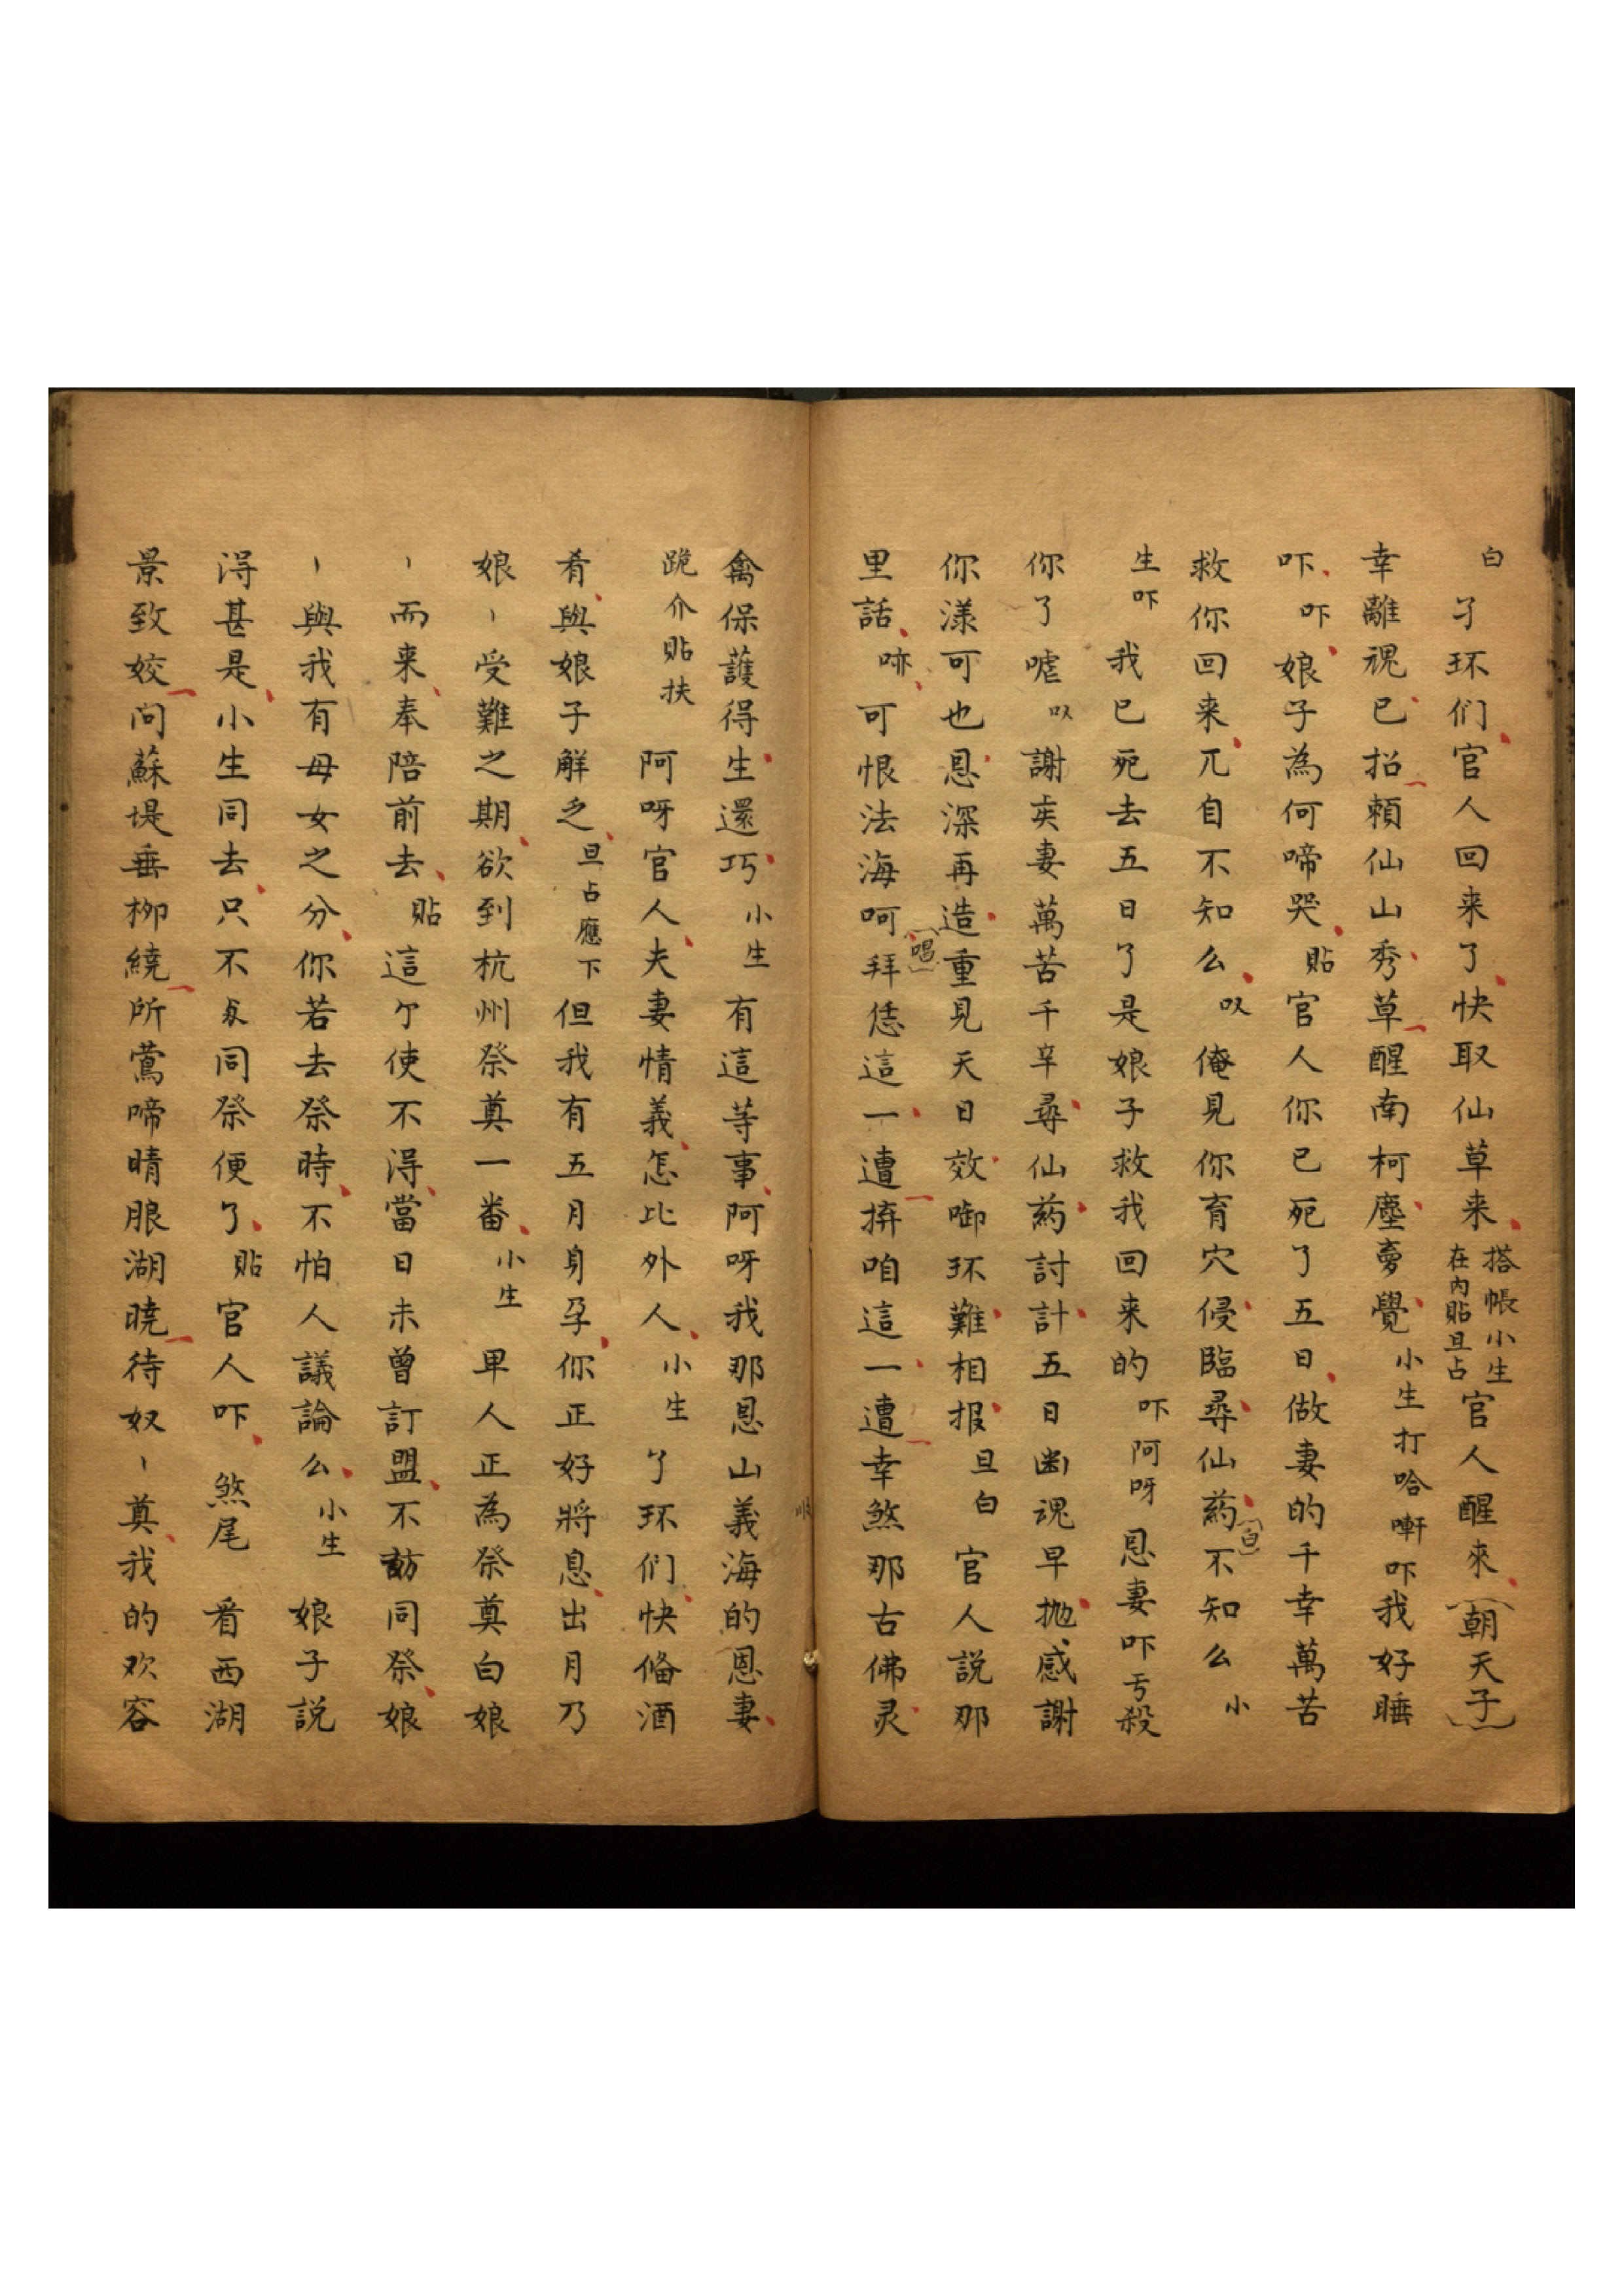 白 了环们官人回来了快取仙草来 搭帳小生在內貼旦占 官人醒來（朝天子）
幸離魂已招賴仙山秀草醒南柯塵夢覺 小生打哈嚹吓 我好睡
吓 吓 娘子為何啼哭 貼 官人你已死了五日做妻的千幸萬苦
救你回来兀自不知么 叹 俺見你育穴侵臨尋仙药（白）不知么 小
生吓 我已死去五日了是娘子救我回来的 吓阿呀 恩妻吓亏殺
你了嘘 叹 謝矣妻萬苦千辛尋仙药討計五日幽魂早抛感謝
你漾可也恩深再造重見天日效啣环難相报 旦白 官人説那
里話 哧 可恨法海呵（唱）拜恁這一遭拚咱這一遭幸煞那古佛灵
禽保護得生還巧 小生 有這等事阿呀我那恩山義海的恩妻
跪介貼扶 阿呀官人夫妻情義怎比外人 小生 了环们快俻酒
肴與娘子解乏 旦占應下 但我有五月身孕你正好將息出月乃
娘〻受難之期欲到杭州祭奠一番 小生 早人正為祭奠白娘
〻而来奉陪前去 貼 這个使不得當日未曾訂盟不訪同祭娘
〻與我有母女之分你若去祭時不怕人議論么 小生 娘子説
得甚是小生同去只不同祭便了 貼 官人吓 煞尾 看西湖
景致姣问蘇堤垂栁繞所鶯啼晴眼湖曉待奴〻奠我的欢容